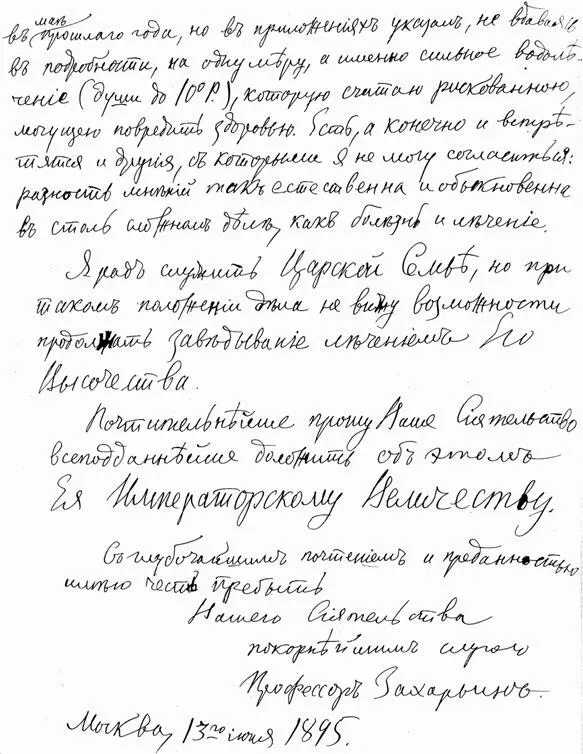 маѣ
въ прошлаго года, но въ приложенiяхъ указалъ, не вдаваясь
въ подробности, на одну мѣру, а именно сильное водолѣ-
ченiе (души до 10° Р.), которую считаю рискованною,
могущею повредить здоровью. Есть, а конечно и встрѣ-
тятся и другiя, съ которыми я не могу согласиться:
разность мнѣнiй такъ естественна и обыкновенна
въ столь сложномъ дѣлѣ, какъ болѣзнь и лѣченiе.
Я радъ служить Царской Семьѣ, но при
такомъ положенiи дѣла не вижу возможности
продолжать завѣдыванiе лѣченiемъ Его
Высочества.
Почтительнѣйше прошу Ваше Сiятельство
всеподданнѣйше доложить объ этомъ
Ея Императорскому Величеству.
Съ глубочайшимъ почтенiемъ и преданностью
имѣю честь пребыть
Вашего Сiятельства
покорнѣйшимъ слугою
Профессоръ Захарьинъ.
Москва, 13го iюня 1895.